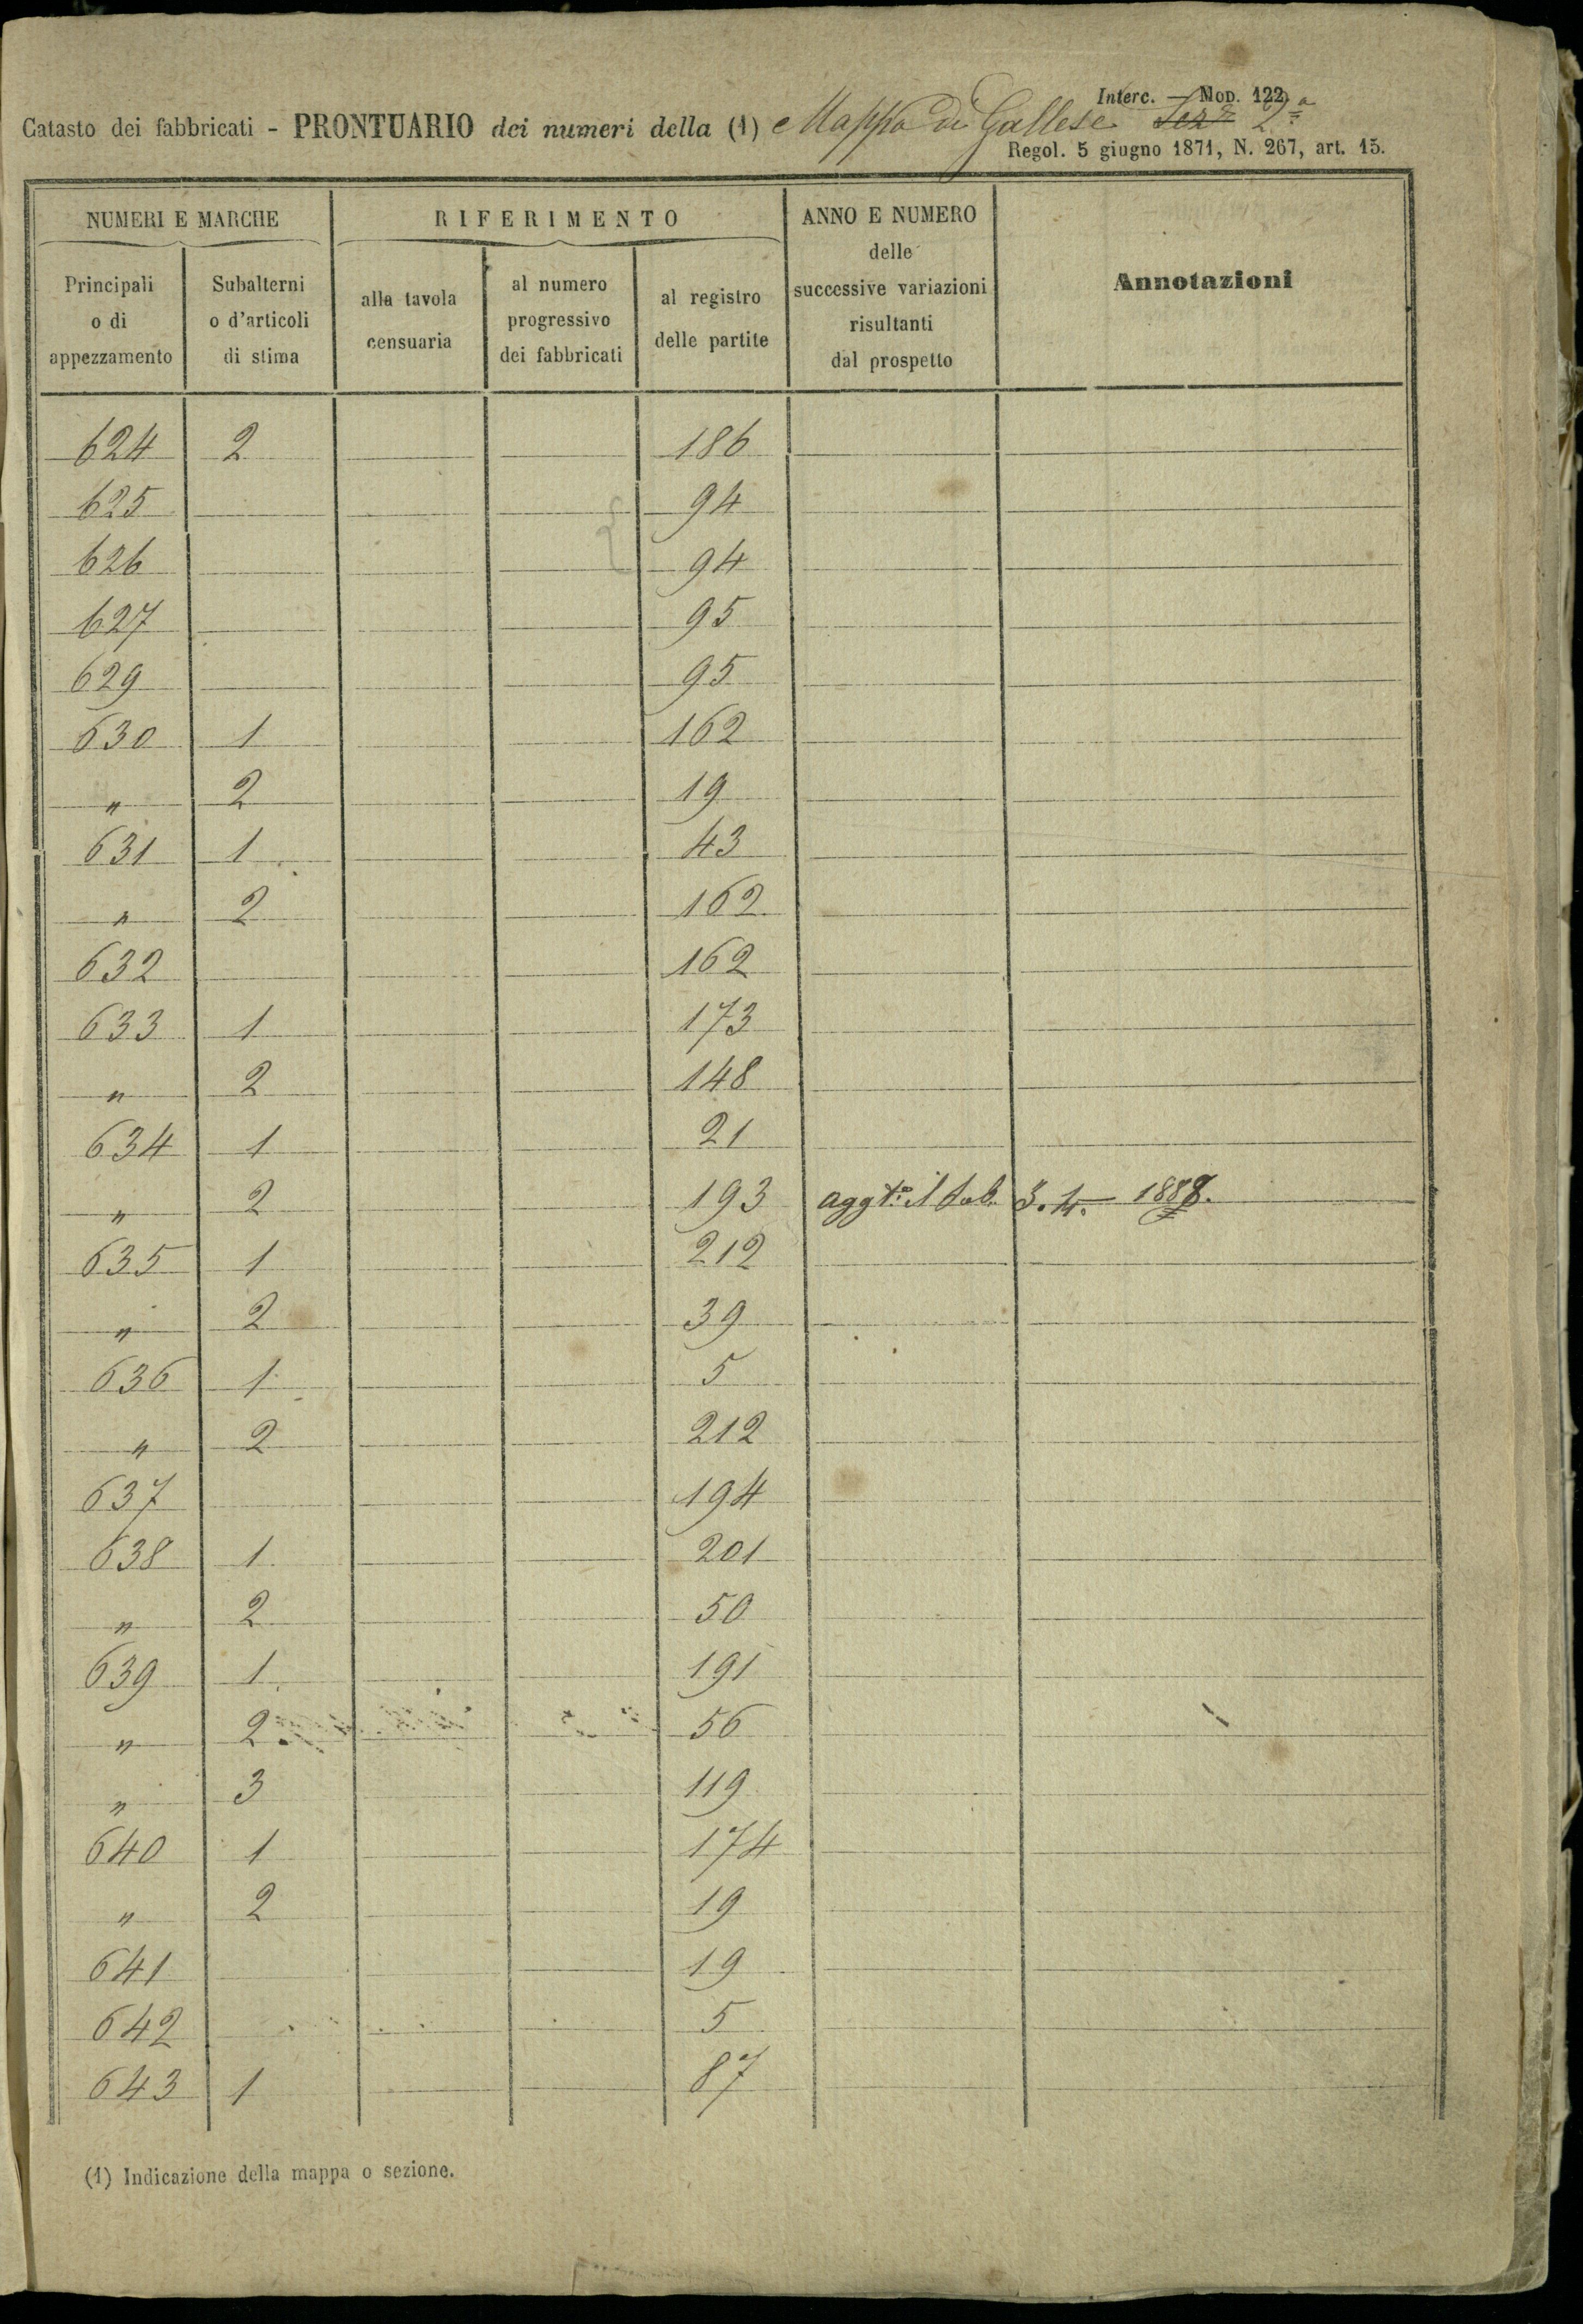 Interc. — Mod. 122
Catasto dei fabbricati - PRONTUARIO dei numeri della (1) Mappa di Gallese Sez.e 2ª
Regol. 5 giugno 1871, N. 267, art. 15.
NUMERI E MARCHE RIFERIMENTO ANNO E NUMERO delle successive variazioni risultanti dal prospetto Annotazioni
Principali o di appezzamento Subalterni o d'articoli di stima alla tavola censuaria al numero progressivo dei fabbricati al registro delle partite
624 2 186
625 94
626 94
627 95
629 95
630 1 162
" 2 19
631 1 43
" 2 162
632 162
633 1 173
" 2 148
634 1 21
" 2 193 aggt.º il 3.4. 1888.
635 1 212
" 2 39
636 1 5
" 2 212
637 194
638 1 201
" 2 50
639 1 191
" 2 56
" 3 119
640 1 174
" 2 19
641 19
642 5
643 1 87
(1) Indicazione della mappa o sezione.